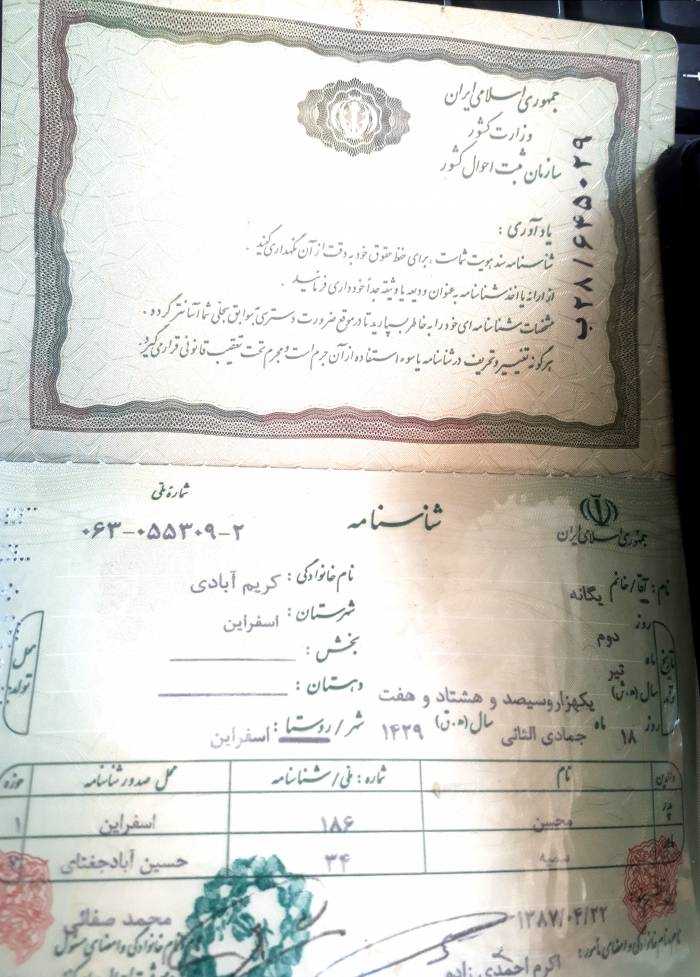 جمهوری اسلامی ایران
وزارت کشور
سازمان ثبت احوال کشور
ب۲۸/۶۴۵۰۲۹
یادآوری :
شناسنامه سند هویت شماست ، برای حفظ حقوق خود به دقت از آن نگهداری کنید .
از ارائه یا اخذ شناسنامه به عنوان ودیعه یا وثیقه جداً خودداری فرمائید .
مشخصات شناسنامه ای خود را به خاطر بسپارید تا در موقع ضرورت دسترسی به سوابق سجلی شما آسانتر گردد .
هرگونه تغییر و تحریف در شناسنامه یا سوء استفاده از آن جرم است و مجرم تحت تعقیب قانونی قرار می گیرد.
جمهوری اسلامی ایران
شناسنامه
شماره ملی
۰۶۳-۰۵۵۳۰۹-۲
نام : آقا/خانم یگانه
نام خانوادگی : کریم آبادی
تاریخ تولد
روز دوم
ماه تیر
سال (ه.ش) یکهزار و سیصد و هشتاد و هفت
روز ۱۸ ماه جمادی الثانی سال (ه.ق) ۱۴۲۹
محل تولد
شهرستان : اسفراین
بخش :
دهستان :
شهر / روستا : اسفراین
والدین نام شماره : ملی/شناسنامه محل صدور شناسنامه حوزه
پدر محسن ۱۸۶ اسفراین ۱
مادر ۳۴ حسین آباد جغتای
۱۳۸۷/۰۴/۲۲
محمد صفائی
نام و نام خانوادگی و امضای مأمور :
اکرم احمدی زاده
نام و نام خانوادگی و امضای مسئول